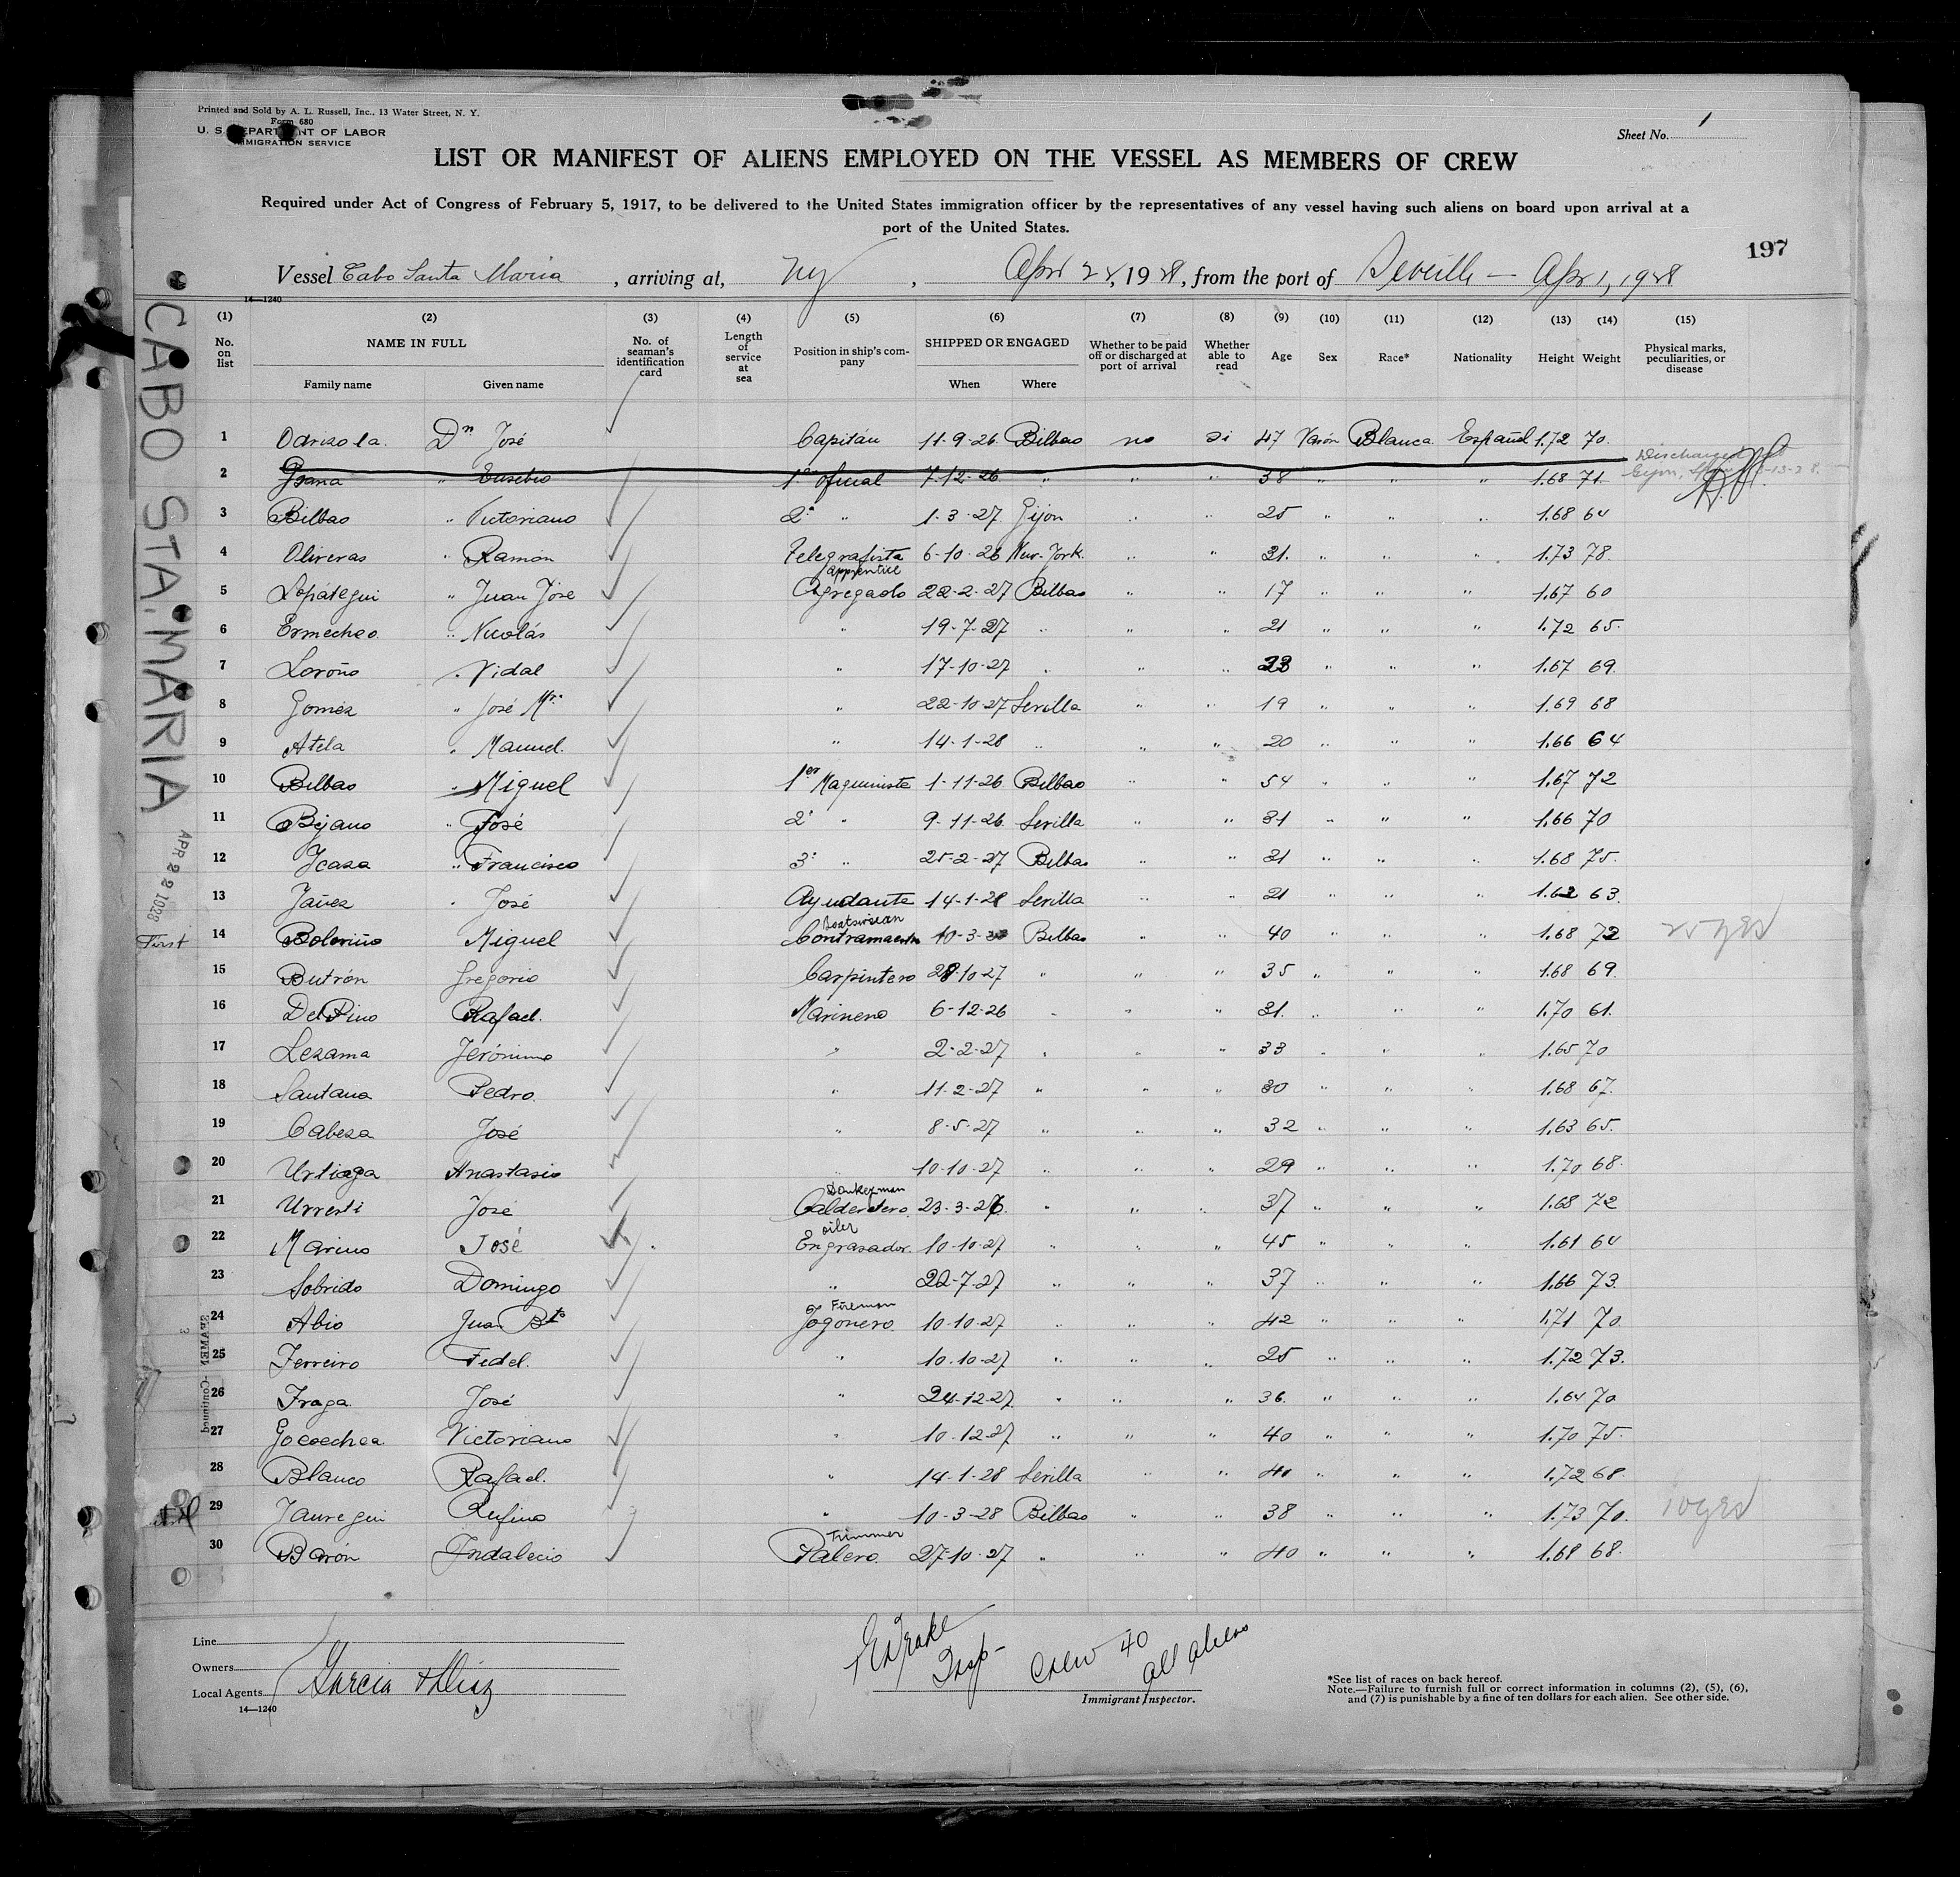 Printed and Sold by A. L. Russell, Inc., 13 Water Street, N. Y.
Form 680
U. S. DEPARTMENT OF LABOR
IMMIGRATION SERVICE
Sheet No. 1
LIST OR MANIFEST OF ALIENS EMPLOYED ON THE VESSEL AS MEMBERS OF CREW
Required under Act of Congress of February 5, 1917, to be delivered to the United States immigration officer by the representatives of any vessel having such aliens on board upon arrival at a
port of the United States.
197
Vessel Cabo Santa Maria, arriving at, NY, Apr 22, 1928, from the port of Seville — Apr 1, 1928
14—1240
CABO STA. MARIA
APR 22 1928
(1) (2) (3) (4) (5) (6) (7) (8) (9) (10) (11) (12) (13) (14) (15)
No. on list NAME IN FULL Family name Given name No. of seaman's identification card Length of service at sea Position in ship's company SHIPPED OR ENGAGED When Where Whether to be paid off or discharged at port of arrival Whether able to read Age Sex Race* Nationality Height Weight Physical marks, peculiarities, or disease
1 Odrizola. Dn José Capitán 11-9-26 Bilbao no si 47 Varón Blanca Español 1.72 70.
2 " Eusebio 1º oficial 7-12-26 " " " 38 " " " 1.68 71. Discharged at Gijon, Spain
3 Bilbao " Victoriano 2º " 1-3-27 Gijon " " 25 " " " 1.68 64
4 Oliveras " Ramón Telegrafista 6-10-26 New-York. " " 31. " " " 1.73 78.
apprentice
5 Lopátegui " Juan José Agregado 22-2-27 Bilbao " " 17 " " " 1.67 60
6 Ermecheo. " Nicolás " 19-7-27 " " " 21 " " " 1.72 65.
7 Loroño " Vidal " 17-10-27 " " " 23 " " " 1.67 69.
8 Gomez " José Mª " 22-10-27 Sevilla " " 19 " " " 1.69 68
9 Atela " Manuel. " 14-1-28 " " " 20 " " " 1.66 64
10 Bilbao " Miguel 1er Maquinista 1-11-26 Bilbao " " 54 " " " 1.67 72
11 Bejano " José 2º " 9-11-26. Sevilla " " 31 " " " 1.66 70
12 Ycaza " Francisco 3º " 25-2-27 Bilbao " " 21 " " " 1.68 75.
13 Yañez " José Ayudante 14-1-28 Sevilla " " 21 " " " 1.62 63.
Boatswain
First 14 Boloriño Miguel Contramaestre 10-3- Bilbao " " 40 " " " 1.68 72 25 yrs
15 Butrón Gregorio Carpintero 28-10-27 " " " 35 " " " 1.68 69.
16 Del Pino Rafael. Marinero 6-12-26 " " " 31. " " " 1.70 61.
17 Lezama Jerónimo " 2-2-27 " " " 33 " " " 1.65 70
18 Santana Pedro. " 11-2-27 " " " 30 " " " 1.68 67.
19 Cabeza José " 8-5-27 " " " 32 " " " 1.63 65.
20 Urtiaga Anastasio " 10-10-27 " " " 29 " " " 1.70 68.
Donkeyman
21 Urresti José Calderetero. 23-3-26. " " " 37 " " " 1.68 72
oiler
22 Marino José Engrasador. 10-10-27 " " " 45 " " " 1.61 64
23 Sobrido Domingo " 22-7-27 " " " 37 " " " 1.66 73.
Fireman
24 Abio Juan Bta Fogonero. 10-10-27 " " " 42 " " " 1.71 70.
25 Ferreiro Fidel. " 10-10-27 " " " 25 " " " 1.72 73.
26 Fraga. José " 24-12-27. " " " 36. " " " 1.64 70
27 Gocoechea. Victoriano " 10-12-27 " " " 40 " " " 1.70 75.
28 Blanco Rafael. " 14-1-28 Sevilla " " 40 " " " 1.72 68.
29 Jauregui Rufino " 10-3-28 Bilbao " " 38 " " " 1.73 70. 10 yrs
Trimmer
30 Barón Indalecio Palero. 27-10-27 " " " 40 " " " 1.68 68.
Line
Owners
Local Agents Garcia & Diaz
14—1240
Drake
Insp- Crew 40
all aliens
Immigrant Inspector.
*See list of races on back hereof.
Note.—Failure to furnish full or correct information in columns (2), (5), (6),
and (7) is punishable by a fine of ten dollars for each alien. See other side.